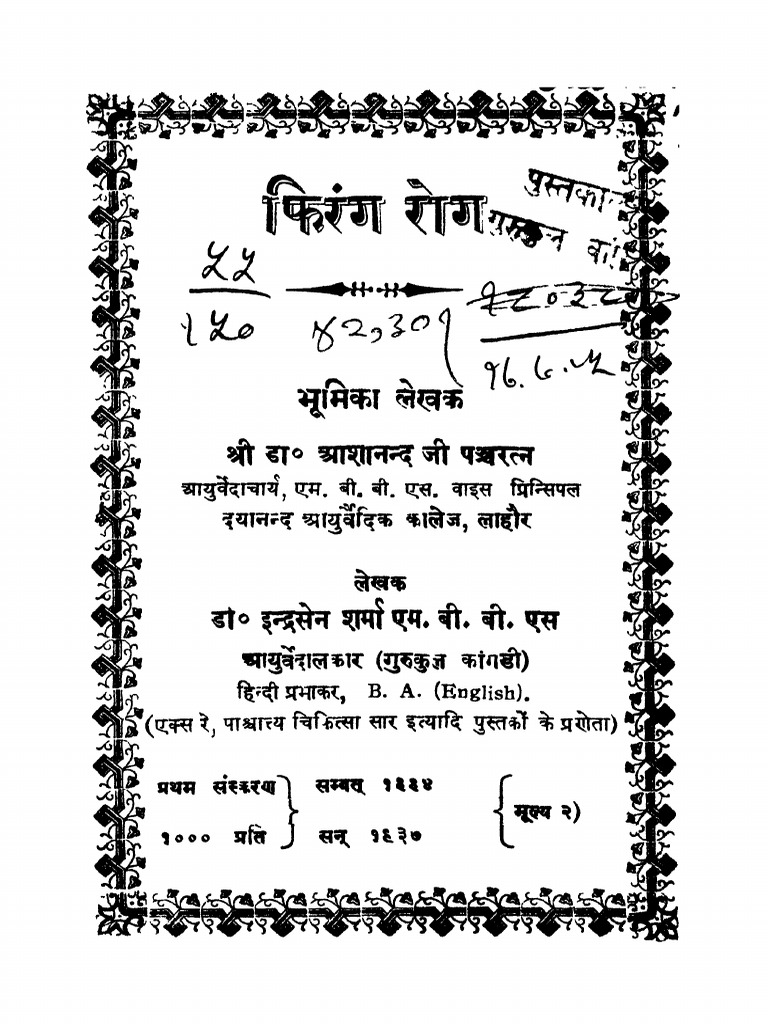 फिरंग रोग
पुस्तका
गुरुकुल कां
५५
१५०
४२,३०१
भूमिका लेखक
श्री डा० आशानन्द जी पञ्चरत्न
आयुर्वेदाचार्य, एम. बी. बी. एस. वाइस प्रिन्सिपल
दयानन्द आयुर्वैदिक कालेज, लाहौर
लेखक
डा० इन्द्रसेन शर्मा एम. बी. बी. एस
आयुर्वेदालंकार (गुरुकुल कांगडी)
हिन्दी प्रभाकर, B. A. (English).
(एक्स रे, पाश्चात्त्य चिकित्सा सार इत्यादि पुस्तकों के प्रणेता)
प्रथम संस्करण सम्वत् १९९४ मूल्य २)
१००० प्रति सन् १९३७